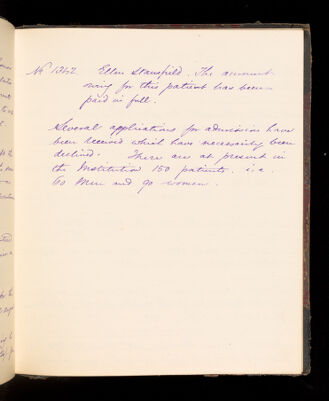 No 1342 Ellen Stansfield. The amount
owing for this patient has been
paid in full.
Several applications for admission have
been received which have necessarily been
declined. There are at present in
the Institution 150 patients. i.e.
60 Men and 90 women.